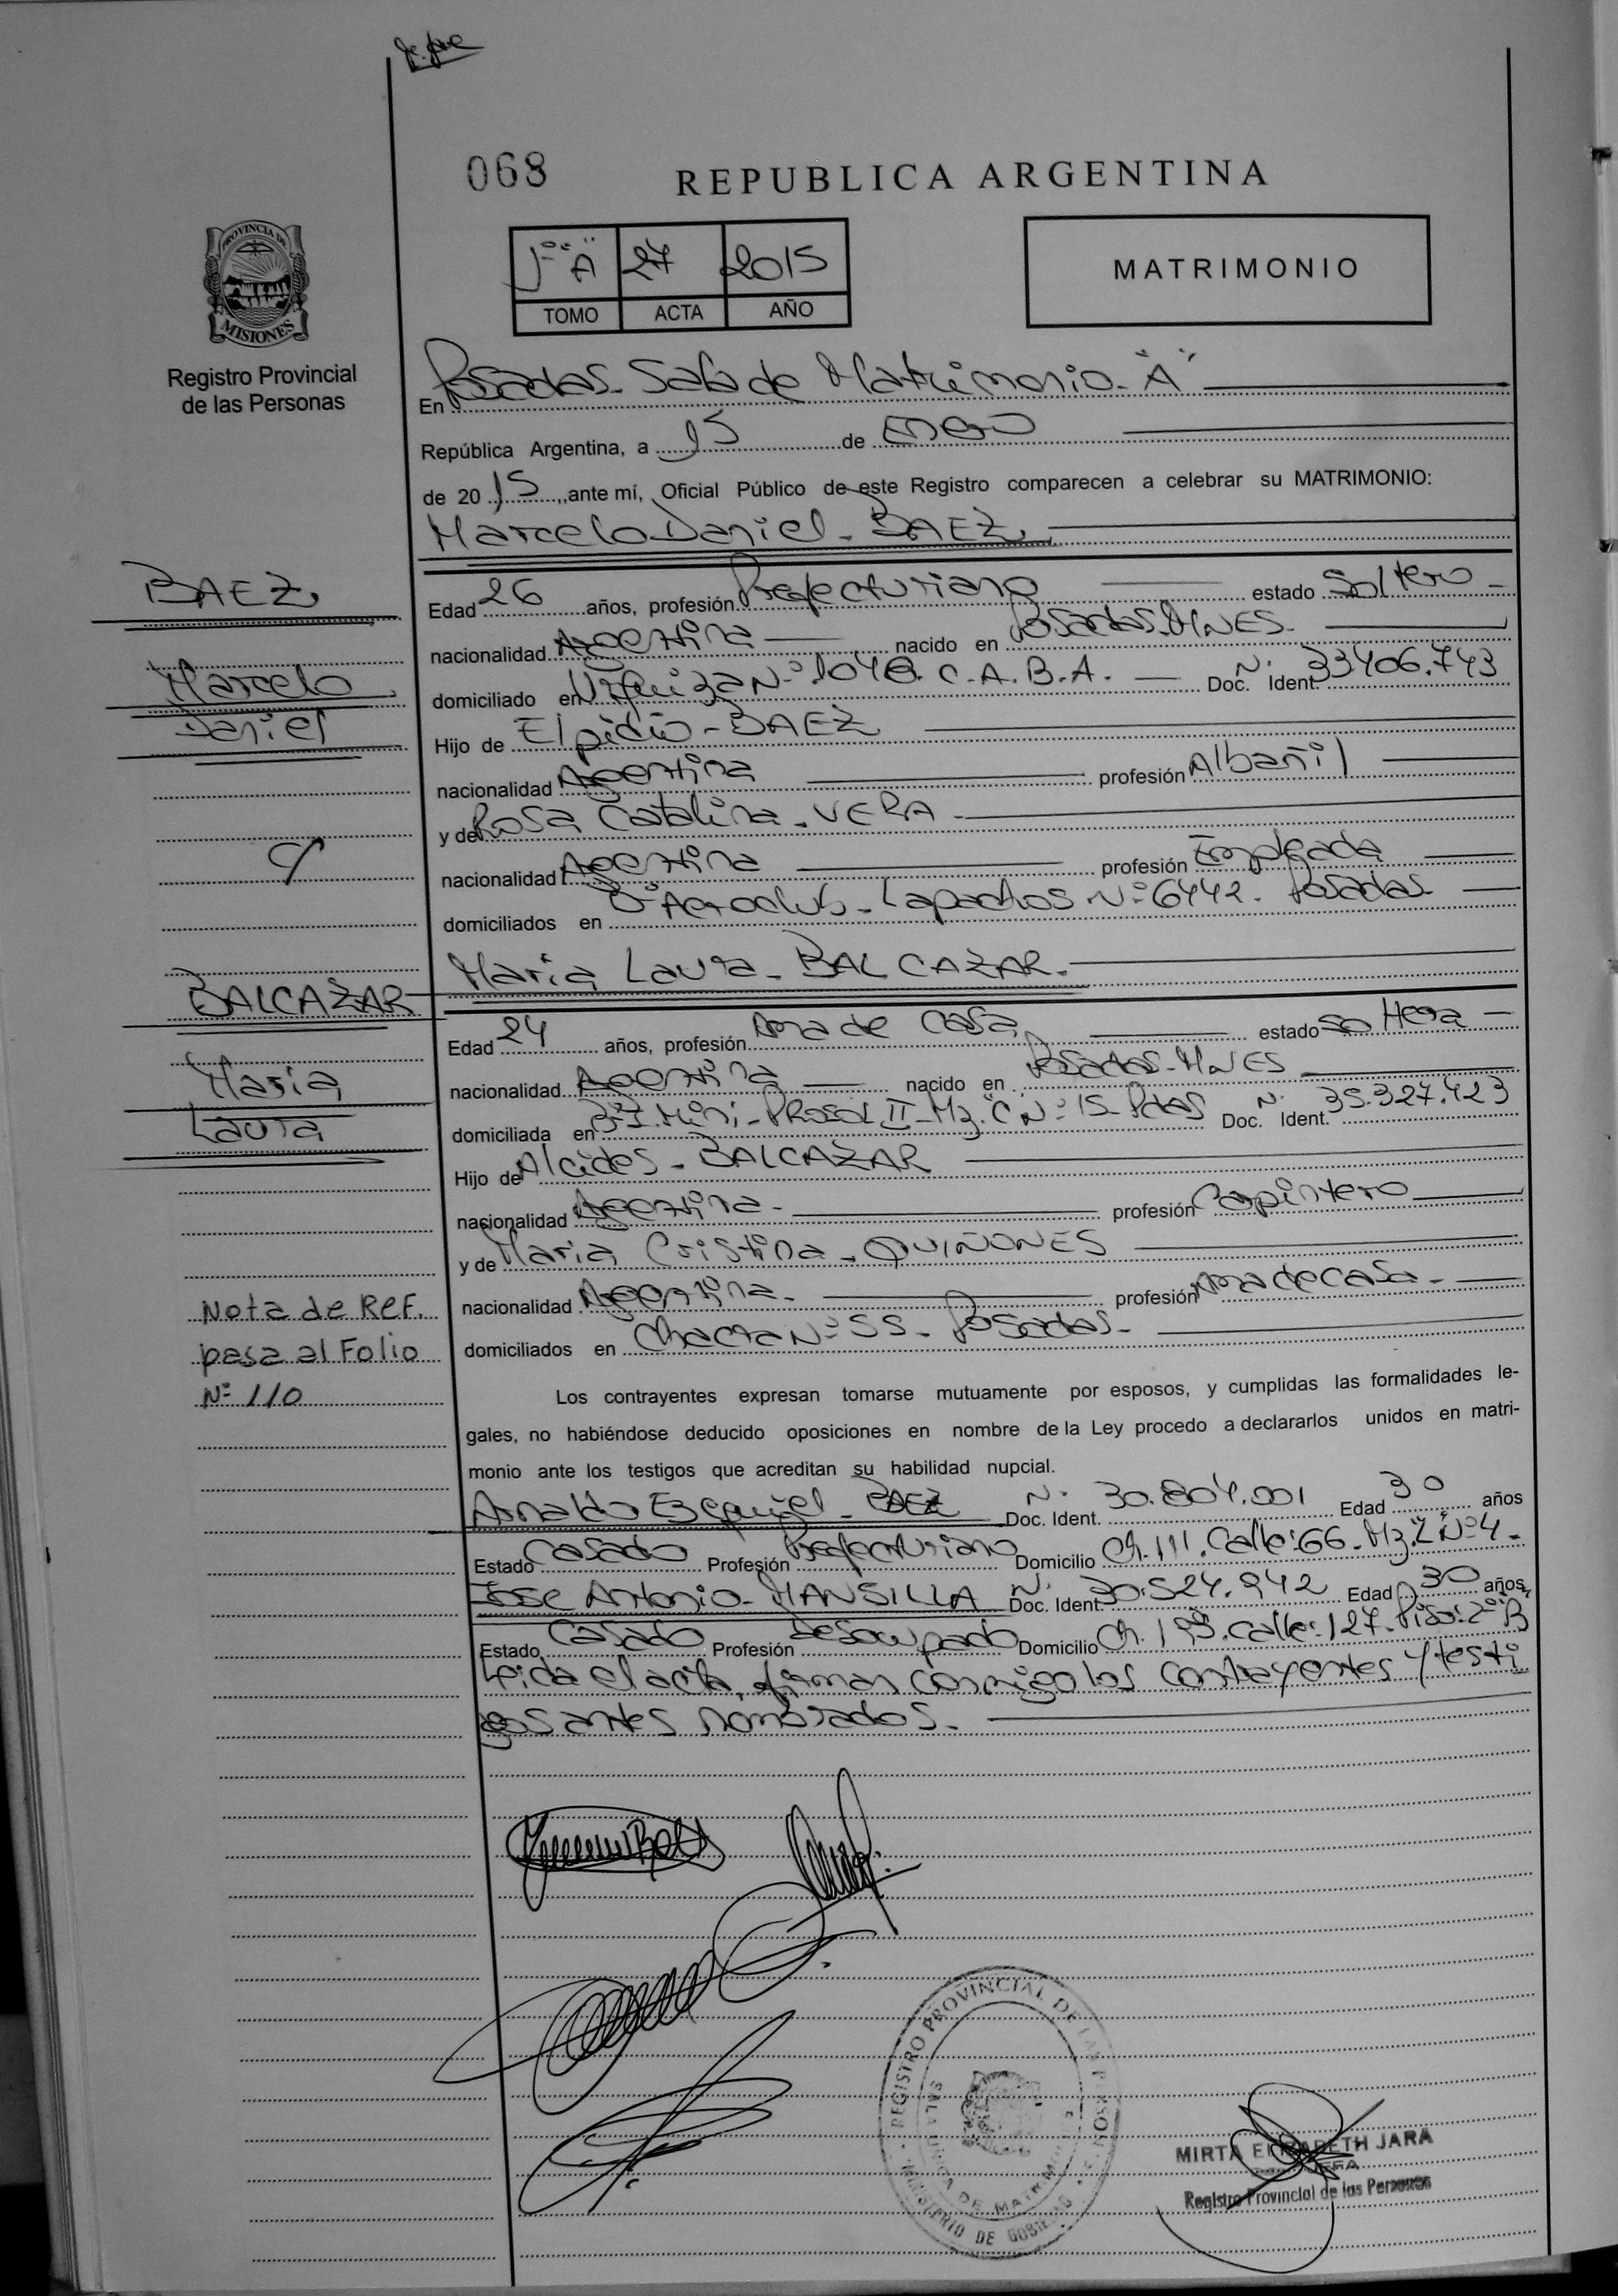 068
REPUBLICA ARGENTINA
PROVINCIA DE
MISIONES
Registro Provincial
de las Personas
1º "A" 27 2015
TOMO ACTA AÑO
MATRIMONIO
En Posadas - Sala de Matrimonio - "A"
República Argentina, a 15 de Enero
de 2015, ante mí, Oficial Público de este Registro comparecen a celebrar su MATRIMONIO:
Marcelo Daniel - BAEZ
BAEZ
Marcelo
Daniel
Edad 26 años, profesión Prefecturiano estado Soltero -
nacionalidad Argentina nacido en Posadas - MNES -
domiciliado en Urquiza Nº 1048. C.A.B.A. - Doc. Ident. Nº 33406.743
Hijo de Elpidio - BAEZ
nacionalidad Argentina profesión Albañil
y de Rosa Catalina - VERA -
nacionalidad Argentina profesión Empleada
domiciliados en Bº Aeroclub - Lapachos Nº 6442 - Posadas
y
Maria Laura - BALCAZAR -
BALCAZAR
Maria
Laura
Edad 24 años, profesión Ama de Casa estado Soltera -
nacionalidad Argentina nacido en Posadas - MNES
domiciliada en Prosol II - Mz. "C" Nº 15 - Pdas Doc. Ident. Nº 35.327.423
Hijo de Alcides - BALCAZAR
nacionalidad Argentina - profesión Carpintero
y de Maria Cristina - QUIÑONES
nacionalidad Argentina - profesión Ama de casa -
domiciliados en Chacra Nº 55 - Posadas -
Nota de Ref.
pasa al Folio
Nº 110
Los contrayentes expresan tomarse mutuamente por esposos, y cumplidas las formalidades le-
gales, no habiéndose deducido oposiciones en nombre de la Ley procedo a declararlos unidos en matri-
monio ante los testigos que acreditan su habilidad nupcial.
Arnaldo Ezequiel - BAEZ Doc. Ident. Nº 30.804.001 Edad 30 años
Estado Casado Profesión Prefecturiano Domicilio Ch. 111. Calle: 66 - Mz. Nº 4 -
Jose Antonio - MANSILLA Doc. Ident. Nº 30.524.942 Edad 30 años,
Estado Casado Profesión Desocupado Domicilio Ch. Calle: 127 - Piso: 2º "B"
Leida el acta, firman conmigo los contrayentes y testi
gos antes nombrados. -
REGISTRO PROVINCIAL DE LAS PERSONAS
MINISTERIO DE GOBIERNO
MIRTA ELIZABETH JARA
Registro Provincial de las Personas